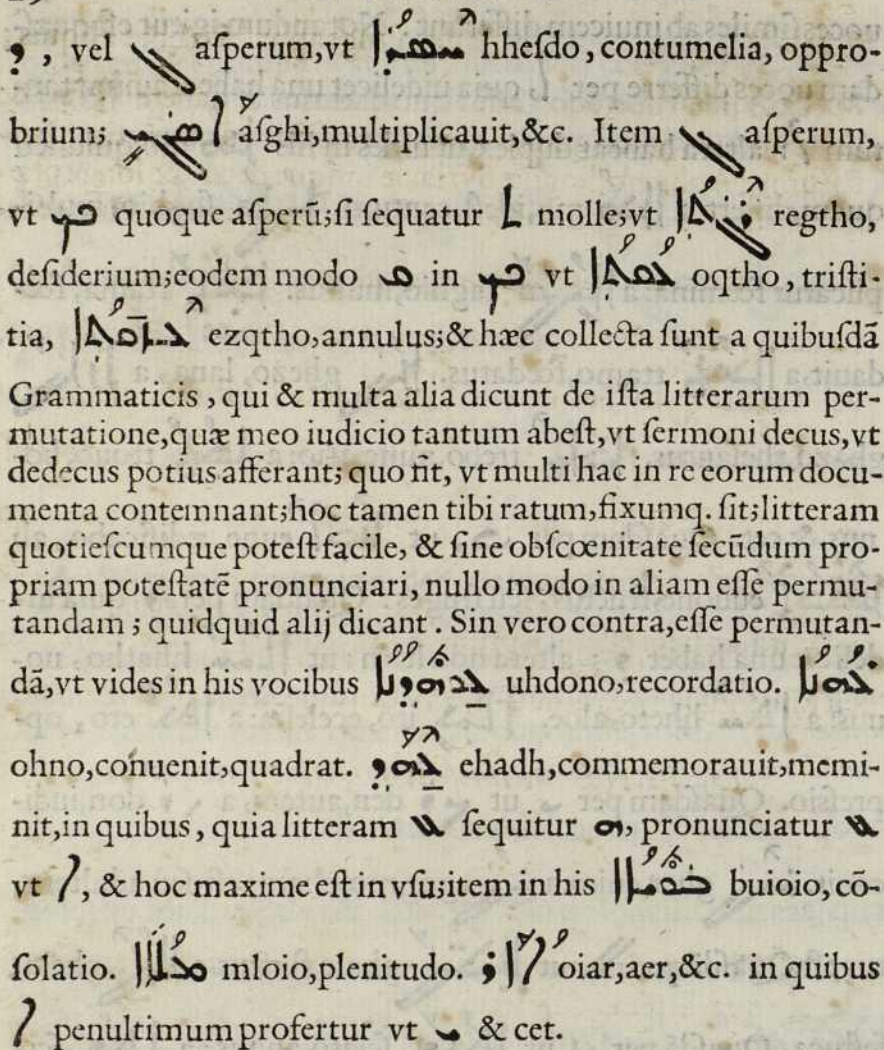 ܕ, vel ܓ aſperum,vt ܚܣܕܐ hheſdo, contumelia, oppro-
brium; ܐܣܓܝ aſghi,multiplicauit,&c. Item ܓ aſperum,
vt ܟ quoque aſperū;ſi ſequatur ܬ molle;vt ܪܓܬܐ regtho,
deſiderium;eodem modo ܩ in ܟ vt ܥܩܬܐ oqtho, triſti-
tia, ܥܙܩܬܐ ezqtho,annulus;& hæc collecta ſunt a quibuſdā
Grammaticis, qui & multa alia dicunt de iſta litterarum per-
mutatione,quæ meo iudicio tantum abeſt,vt ſermoni decus,vt
dedecus potius afferant; quo fit, vt multi hac in re eorum docu-
menta contemnant;hoc tamen tibi ratum,fixumq. ſit;litteram
quotieſcumque poteſt facile, & ſine obſcœnitate ſecūdum pro-
priam poteſtatē pronunciari, nullo modo in aliam eſſe permu-
tandam; quidquid alij dicant. Sin vero contra,eſſe permutan-
dā,vt vides in his vocibus ܥܘܗܕܢܐ uhdono,recordatio. ܥܗܢܐ
ohno,conuenit,quadrat. ܥܗܕ ehadh,commemorauit,memi-
nit,in quibus, quia litteram ܥ ſequitur ܗ, pronunciatur ܥ
vt ܐ, & hoc maxime eſt in vſu;item in his ܒܘܝܐܐ buioio, cō-
ſolatio. ܡܠܐܐ mloio,plenitudo. ܐܐܪ oiar,aer,&c. in quibus
ܐ penultimum profertur vt ܝ & cet.